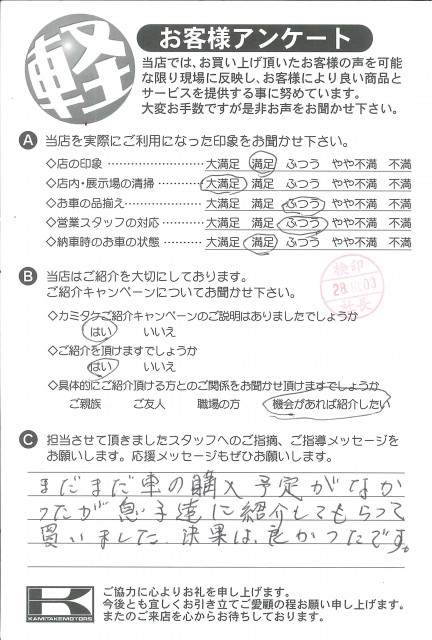 軽
お客様アンケート
当店では、お買い上げ頂いたお客様の声を可能
な限り現場に反映し、お客様により良い商品と
サービスを提供する事に努めています。
大変お手数ですが是非お声をお聞かせ下さい。
A 当店を実際にご利用になった印象をお聞かせ下さい。
◇店の印象 ………………… 大満足 満足 ふつう やや不満 不満
◇店内・展示場の清掃 ………… 大満足 満足 ふつう やや不満 不満
◇お車の品揃え ……………… 大満足 満足 ふつう やや不満 不満
◇営業スタッフの対応 ………… 大満足 満足 ふつう やや不満 不満
◇納車時のお車の状態 ………… 大満足 満足 ふつう やや不満 不満
B 当店はご紹介を大切にしてあります。
ご紹介キャンペーンについてお聞かせ下さい。
検印
社長
◇カミタケご紹介キャンペーンのご説明はありましたでしょうか
はい いいえ
◇ご紹介を頂けますでしょうか
はい いいえ
◇具体的にご紹介頂ける方とのご関係をお聞かせ頂けますでしょうか
ご親族 ご友人 職場の方 機会があれば紹介したい
C 担当させて頂きましたスタッフへのご指摘、ご指導メッセージを
お願いします。応援メッセージもぜひお願いします。
まだまだ車の購入予定がなか
ったが息子達に紹介してもらって
買いました。決果は、良かったです。
K
KAMITAKEMOTORS
ご協力に心よりお礼を申し上げます。
今後とも宜しくお引き立てご愛顧の程お願い申し上げます。
またのご来店を心からお待ちしております。